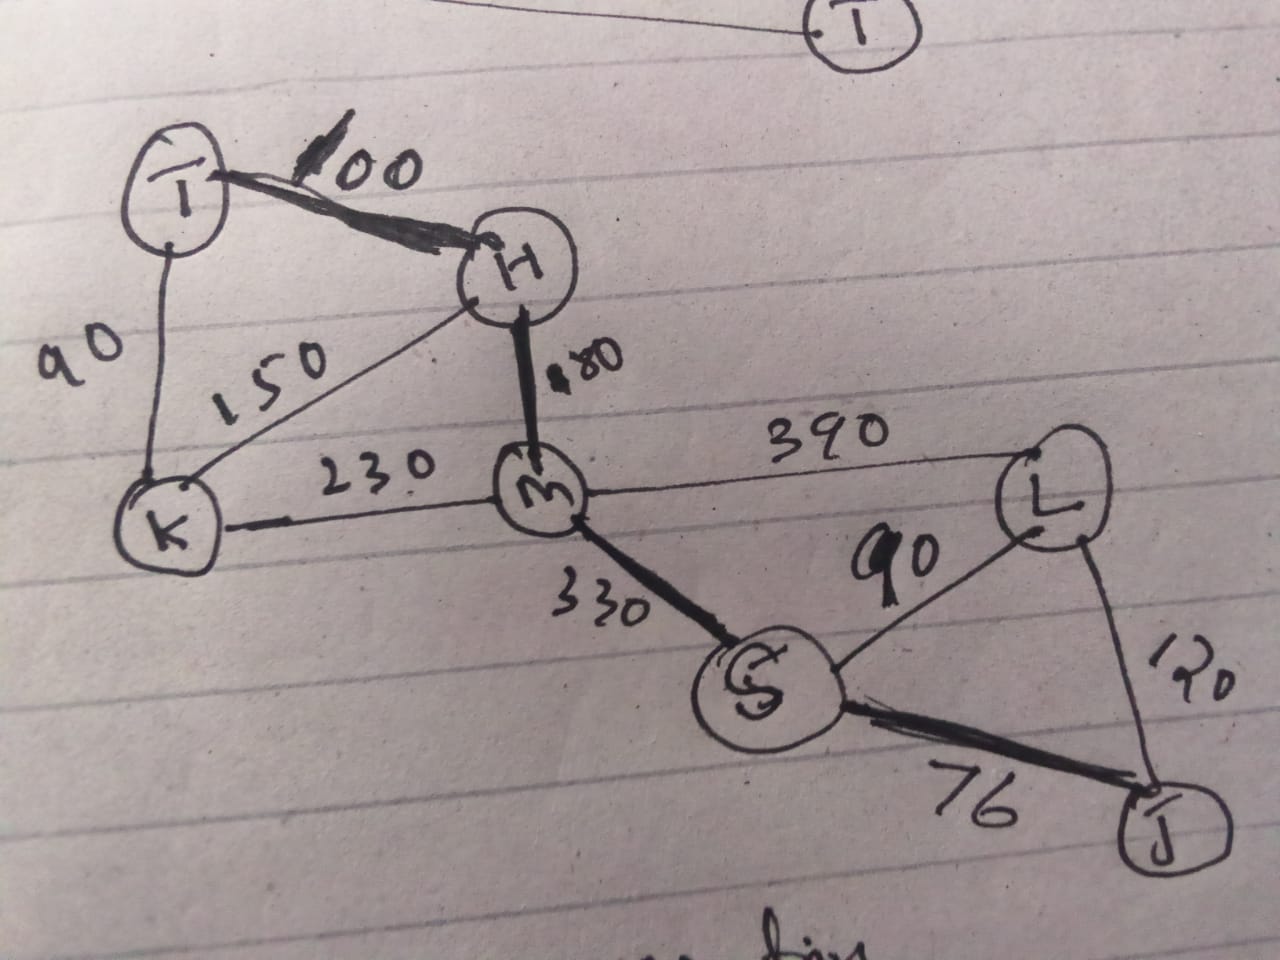 T
T
100
H
90
150
180
K
230
M
390
L
330
90
S
120
76
J